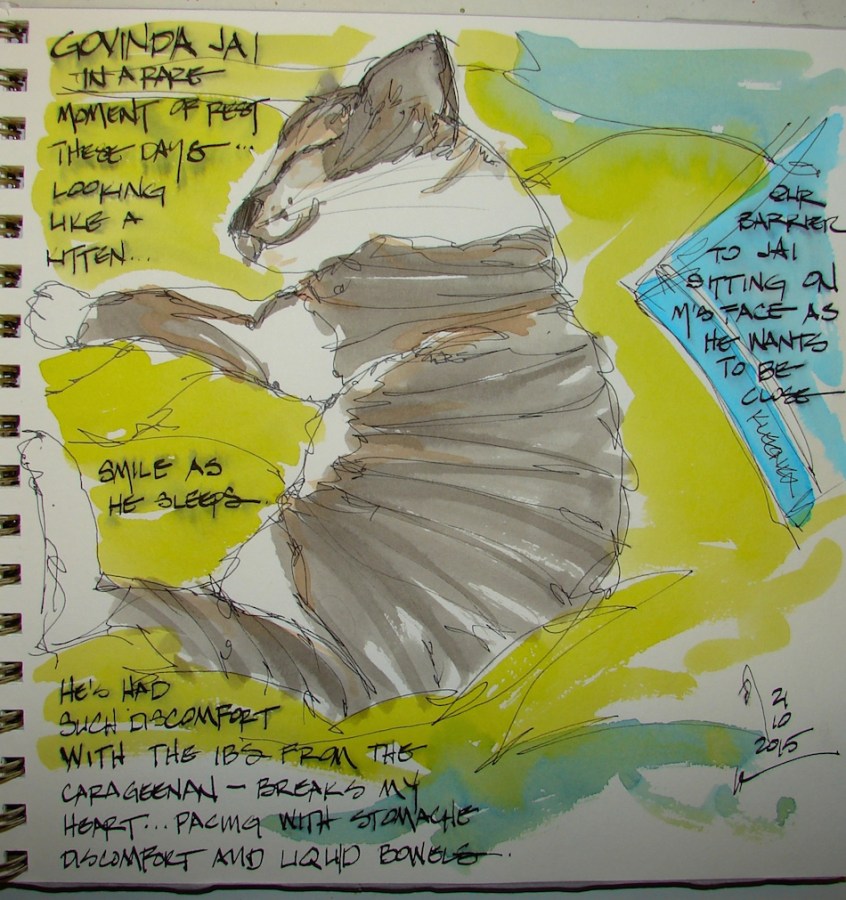 GOVINDA JAI
IN A RARE
MOMENT OF REST
THESE DAYS...
LOOKING
LIKE A
KITTEN...
OUR
BARRIER
TO JAI
SITTING ON
M'S FACE AS
HE WANTS
TO BE
CLOSE
KLEENEX
SMILE AS
HE SLEEPS
HE'S HAD
SUCH DISCOMFORT
WITH THE IBS FROM THE
CARAGEENAN - BREAKS MY
HEART... PACING WITH STOMACHE
DISCOMFORT AND LIQUID BOWELS.
10
2015